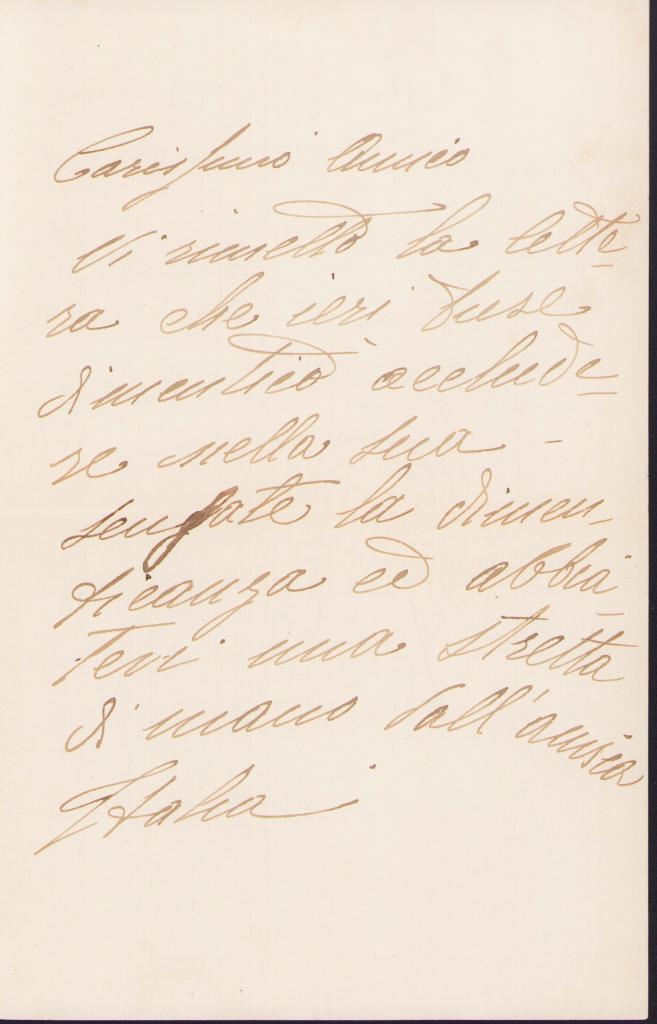 Carissimo Amico
Vi rimetto la lette-
ra che ieri Duse
dimenticò acclude-
re nella sua -
scusate la dimen-
ticanza ed abbia-
tevi una stretta
di mano dall'amica
Italia